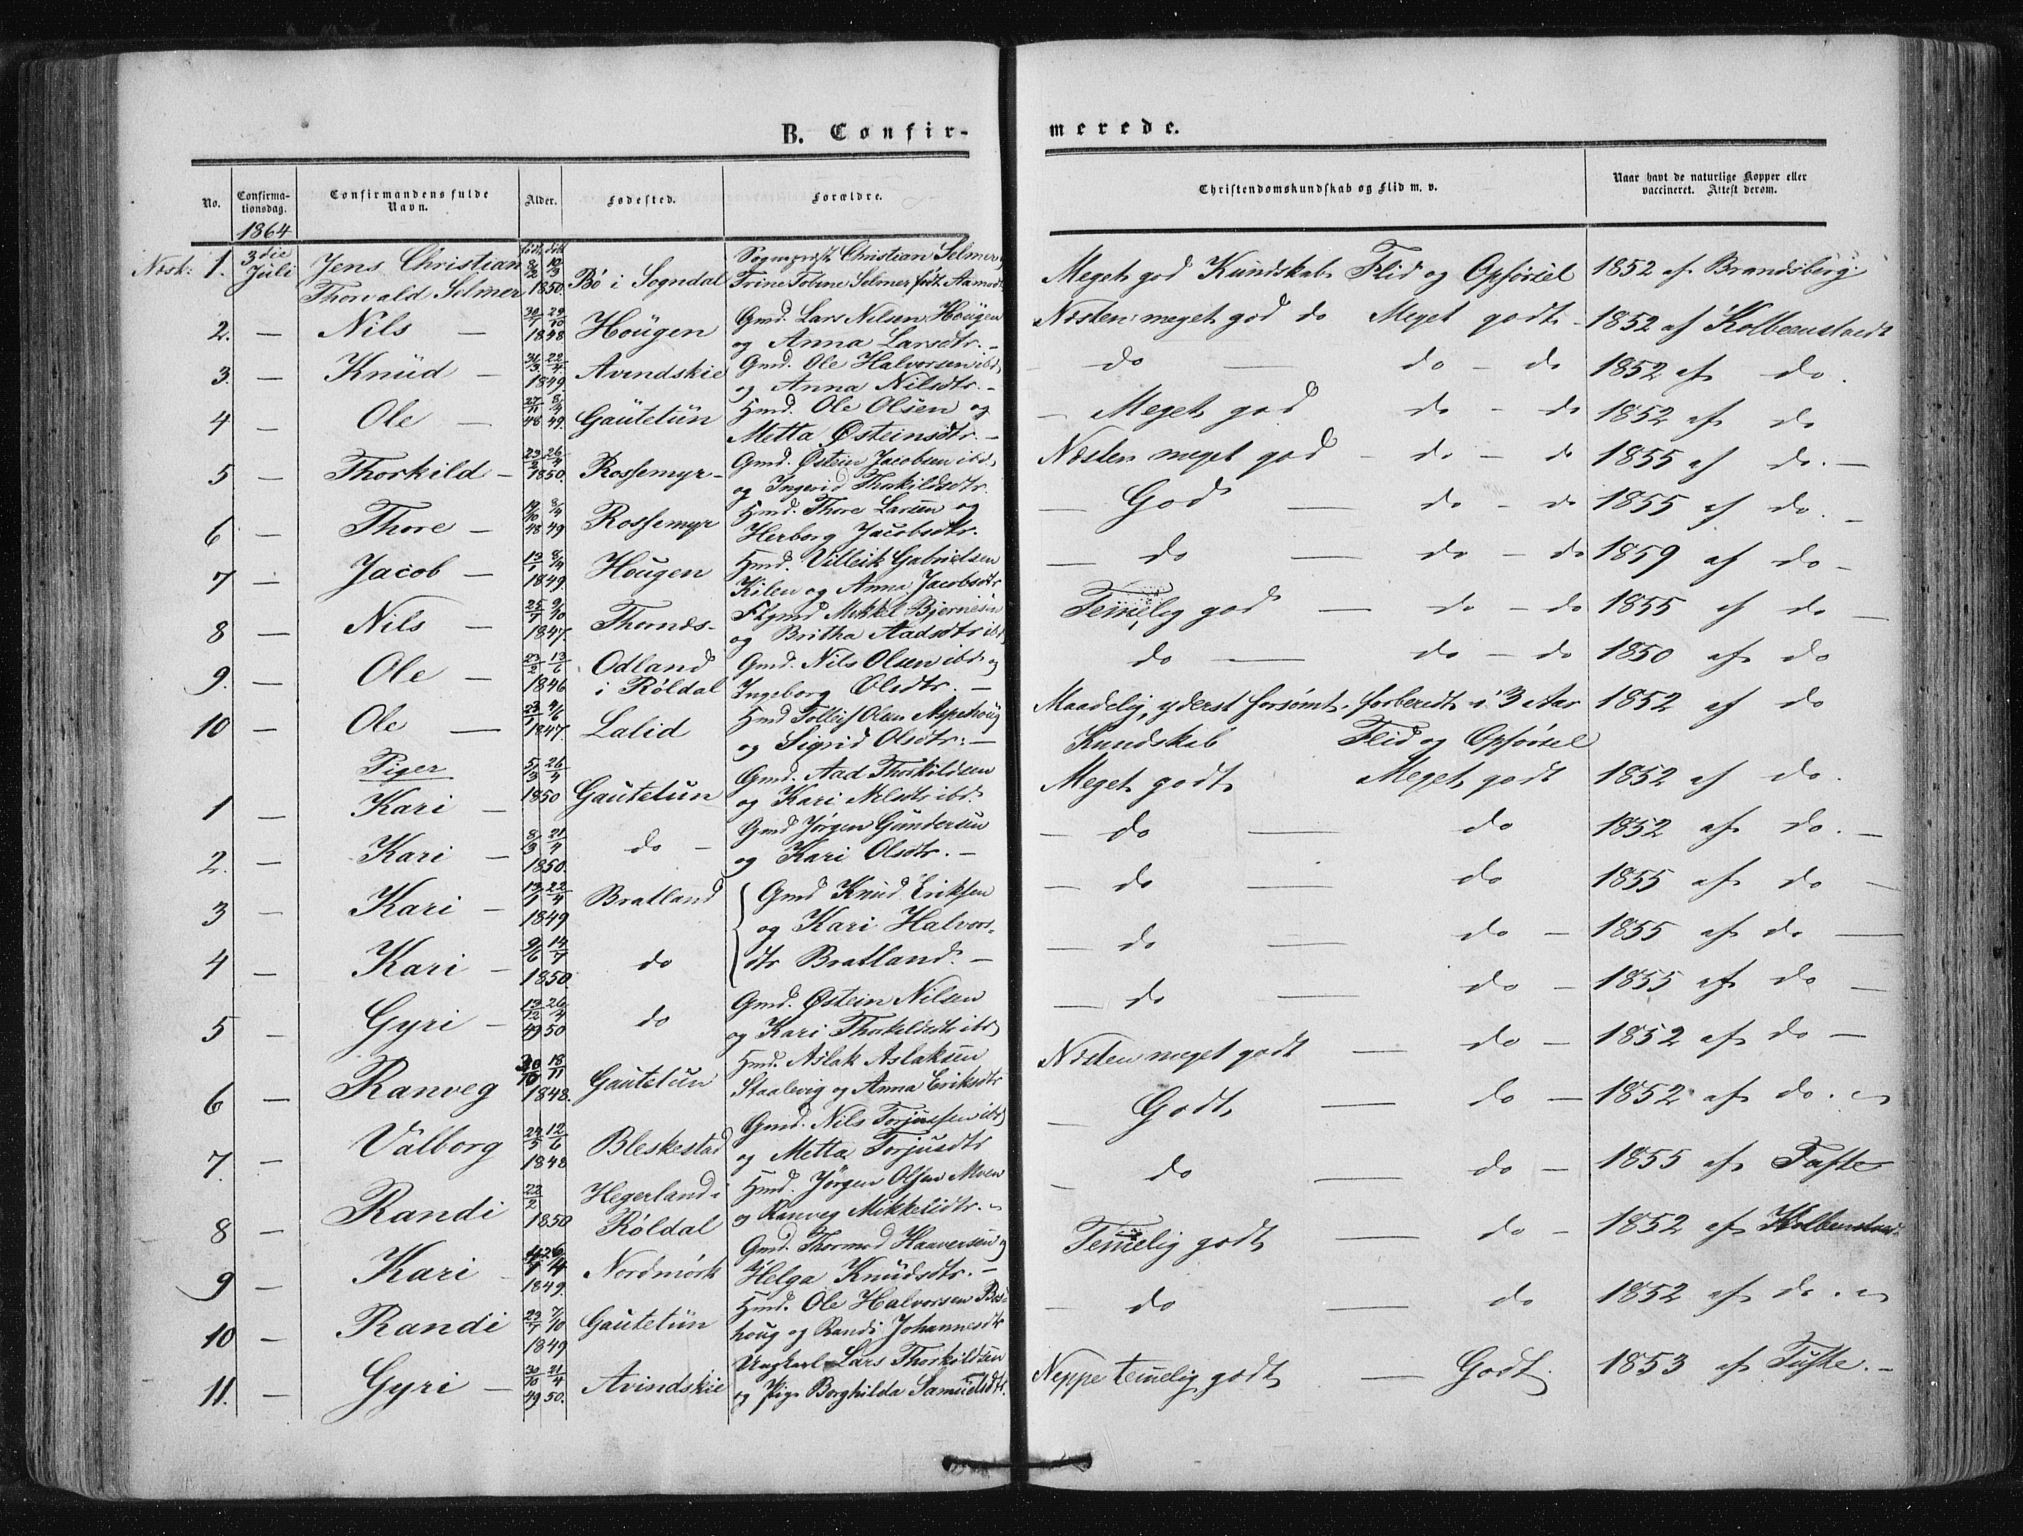 B. Confir-
merede.
No.
Confirma-
tionsdag.
Confirmandens fulde
Navn.
Alder.
Fødested.
Forældre.
Christendomskundskab og Flid m. v.
Naar havt de naturlige Kopper eller
vaccineret. Attest derom.
1864
1. 3die Juli Jens Christian Thorvald Selmer 1850. Bø i Sogndal Sognepræst Christian Selmer Trine Tobine Selmer født Aamodt Meget god Kundskab Flid og Opførsel 1852 af Brandsberg.
2. — Nils — 1848 Hougen Gmd. Lars Nilsen Hougen og Anna Larsdtr. — Næsten meget god do Meget godt — 1852 af Kolbeenstvedt
3. — Knud — 31/3 22/4 1849. Avendskie Gmd. Ole Halvorsen ibd og Anna Nilsdtr. — do — do — do 1852 af do.
4 — Ole — 27/11 48 49. Gautetun Hmd. Ole Olsen og Metta Østeinsdtr. — Meget god do — do 1852 af do
5 — Thorkild — 26/4 1850. Rossemyr — Gmd. Østein Jacobsen ibd. og Ingerid Thorkildsdtr. Næsten meget god — do — do 1855 af do. —
6 — Thore — 48 49 Rossemyr Hmd. Thore Larsen og Herborg Jacobsdtr. — God — do — do 1855 af do. —
7 — Jacob — 1849. Hougen Hmd. Villeik Gabrielsen Kilen og Anna Jacobsdtr — do — do — do 1859 af do —
8 — Nils — 1847. Thornæs — Mikkel Bjørnesen og Britha Aadsdtr ibd Temelig god — do — do 1855 af do —
9. — Ole — 23/2 13/6 1846 Odland i Røldal Gmd. Nils Olsen ibd. og Ingeborg Olsdtr. — do — do — do 1850 af do
10 — Ole — 1847. Lalid Hmd Tolleif Olsen Aspehoug og Sigrid Olsdtr. — Maadelig, yderst forsømt, forberedt i 3 Aar 1852 af do
Piger
Kundskab Flid og Opførsel
1 Kari — 5/3 26/4 1850 Gautetun Gmd. Aad Thorkildsen og Kari Nilsdtr ibd. Meget godt Meget godt 1852 af do.
2. — Kari — 8/3 21/4 1850. do — Gmd Jørgen Gundersen og Kari Olsdtr. — do — do 1852 af do. —
3 — Kari — 13/1 22/4 1849 Bratland Gmd Knud Eriksen og Kari Halvors- — do — do 1855 af do —
4 — Kari — 1850. do dtr Bratland. — do — do — 1855 af do —
5 — Gyri — 13/12 26/4 49 50 do Gmd. Østein Nilsen og Kari Thorkildsdtr ibd — do — do — 1855 af do —
6 — Ranveg 18/11 1848. Gautetun Hmd. Aslak Aslaksen Staalevig og Anna Eriksdtr Næsten meget godt — do — 1852 af do —
7. — Valborg 12/6 1848 Bleskestad Gmd. Nils Torjussen ibd og Metta Torjusdtr — Godt — do — 1852 af do.
8 — Randi 22/2 1850 Hegerland i Røldal Hmd. Jørgen Olsen Moen og Ranveg Mikkelsdtr. — do — do — 1855 af Tufte
9 — Kari — 1849. Nordmørk Gmd. Thormod Haaversen og Helga Knudsdtr. — Temelig godt — do — 1852 af Kolbenstvedt
10 — Randi 7/10 1849 Gautetun Hmd. Ole Halvorsen houg og Randi Johannesdtr — do — do 1852 af do.
11. — Gyri — 21/4 49 50. Avindskie Ungkarl Lars Thorkildsen og Pige Borghilda Samuelsdtr. Neppe temelig godt — Godt. 1853 af Tufte. —